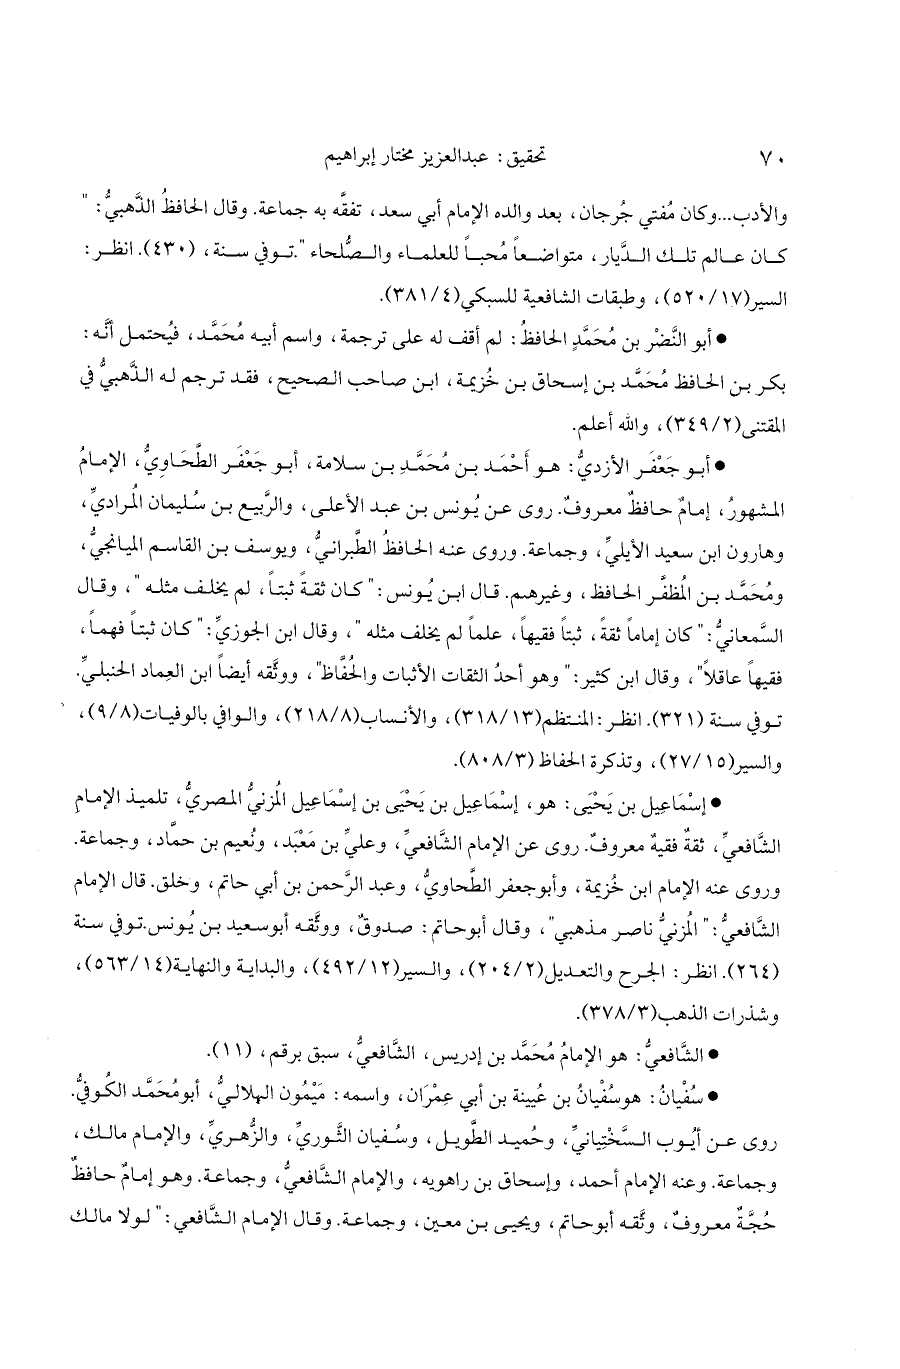 ٧٠ تحقيق: عبدالعزيز مختار إبراهيم
والأدب...وكان مُفتي جُرجان، بعد والده الإمام أبي سعد، تفقَّه به جماعة. وقال الحافظُ الذَّهبيُّ: "
كـان عـالم تلـك الـدِّيار، متواضعـاً مُحبـاً للعلمـاء والـصُّلحاء".تـوفي سـنة، (٤٣٠). انظـر:
السير(١٧/ ٥٢٠)، وطبقات الشافعية للسبكي(٤/ ٣٨١).
● أبو النَّضْر بن مُحَمَّدٍ الحافظُ: لم أقف له على ترجمة، واسم أبيه مُحَمَّد، فيُحتمل أنَّه:
بكر بن الحافظ مُحَمَّد بن إسحاق بن خُزيمة، ابن صاحب الصحيح، فقد ترجم له الذَّهبيُّ في
المقتنى(٢/ ٣٤٩)، والله أعلم.
● أبـو جَعْفَـر الأزديُّ: هـو أَحْمَـد بـن مُحَمَّـدِ بـن سـلامة، أبـو جَعْفَـر الطَّحَـاوِيُّ، الإمـامُ
المـشهورُ، إمـامٌ حـافظٌ معـروفٌ. روى عـن يُـونس بـن عبـد الأعلـى، والرَّبيع بـن سُليمان المُراديِّ،
وهارون ابن سعيد الأيليِّ، وجماعة. وروى عنه الحافظُ الطَّبرانيُّ، ويوسف بن القاسم الميانجيُّ،
ومُحَمَّـد بـن المُظفَّـر الحـافظ، وغيرهـم. قـال ابـن يُـونس:"كـان ثقـةً ثبتـاً، لم يخلـف مثلـه"، وقـال
السَّمعانيُّ:"كان إماماً ثقة، ثبتاً فقيهاً، علماً لم يخلف مثله"، وقال ابن الجوزيِّ:"كان ثبتاً فهماً،
فقيهاً عاقلاً"، وقال ابن كثير:"وهو أحدُ الثقات الأثبات والحُفَّاظ"، ووثَّقه أيضاً ابن العِماد الحنبليِّ.
تـوفي سـنة (٣٢١). انظـر:المنتظم(١٣/ ٣١٨)، والأنساب(٨/ ٢١٨)، والـوافي بالوفيات(٨/ ٩)،
والسير(١٥/ ٢٧)، وتذكرة الحفاظ (٣/ ٨٠٨).
● إِسْمَاعِيل بن يَحْيَى: هو، إسْمَاعيل بن يَحْيَى بن إسْمَاعيل المُزنيُّ المصريُّ، تلميذ الإمام
الشَّافعيِّ، ثقةٌ فقيهٌ معروفٌ. روى عن الإمام الشَّافعيِّ، وعليِّ بن مَعْبَد، ونُعيم بن حمَّاد، وجماعة.
وروى عنه الإمام ابن خُزيمة، وأبوجعفر الطَّحاويُّ، وعبد الرَّحمن بن أبي حاتم، وخلق. قال الإمام
الشَّافعيُّ:"المُزنيُّ ناصر مذهبي"، وقال أبوحاتم: صدوقٌ، ووثَّقه أبوسعيد بن يُونس.توفي سنة
(٢٦٤). انظـر: الجـرح والتعـديل(٢/ ٢٠٤)، والـسير(١٢/ ٤٩٢)، والبداية والنهاية(١٤/ ٥٦٣)،
وشذرات الذهب(٣/ ٣٧٨).
● الشَّافعيُّ: هو الإمامُ مُحَمَّد بن إدريس، الشَّافعيُّ، سبق برقم، (١١).
● سُفْيَانُ: هوسُفْيان بن عُيينة بن أبي عِمْرَان، واسمه: مَيْمُون الهلاليُّ، أبومُحَمَّد الكُوفيُّ.
روى عـن أيُّوب الـسَّخْتِيانيِّ، وحُميد الطَّويـل، وسُـفيان الثَّـوريِّ، والزُّهـريِّ، والإمـام مالـك،
وجماعة. وعنه الإمام أحمد، وإسحاق بن راهويه، والإمام الشَّافعيُّ، وجماعة. وهـو إمـامٌ حـافظٌ
حُجَّةٌ معروفٌ، وثَّقه أبوحاتم، ويحيى بن معين، وجماعة. وقال الإمام الشَّافعي:"لـولا مالـك